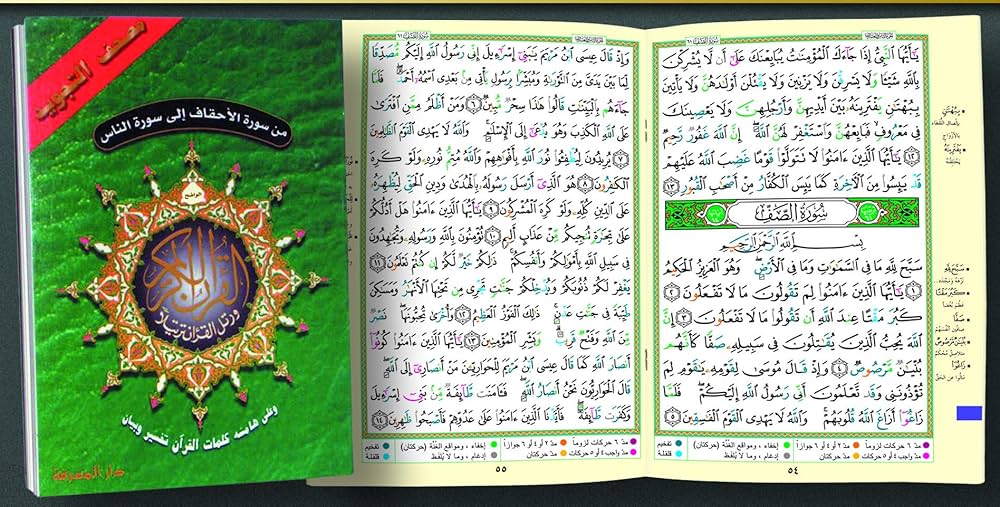 مصحف التجويد
من سورة الأحقاف إلى سورة الناس
الواضح
القرآن الكريم
ورتل القرآن ترتيلا
وعلى هامشه كلمات القرآن تفسير وبيان
دار المعرفة
سُورَةُ الصَّفِّ ٦١
يَٰٓأَيُّهَا ٱلنَّبِىُّ إِذَا جَآءَكَ ٱلْمُؤْمِنَٰتُ يُبَايِعْنَكَ عَلَىٰٓ أَن لَّا يُشْرِكْنَ
بِٱللَّهِ شَيْـًٔا وَلَا يَسْرِقْنَ وَلَا يَزْنِينَ وَلَا يَقْتُلْنَ أَوْلَٰدَهُنَّ وَلَا يَأْتِينَ
بِبُهْتَٰنٍ يَفْتَرِينَهُۥ بَيْنَ أَيْدِيهِنَّ وَأَرْجُلِهِنَّ وَلَا يَعْصِينَكَ
فِى مَعْرُوفٍ فَبَايِعْهُنَّ وَٱسْتَغْفِرْ لَهُنَّ ٱللَّهَ إِنَّ ٱللَّهَ غَفُورٌ رَّحِيمٌ
١٢ يَٰٓأَيُّهَا ٱلَّذِينَ ءَامَنُوا۟ لَا تَتَوَلَّوْا۟ قَوْمًا غَضِبَ ٱللَّهُ عَلَيْهِمْ
قَدْ يَئِسُوا۟ مِنَ ٱلْءَاخِرَةِ كَمَا يَئِسَ ٱلْكُفَّارُ مِنْ أَصْحَٰبِ ٱلْقُبُورِ ١٣
سُورَةُ الصَّفِّ
بِسْمِ ٱللَّهِ ٱلرَّحْمَٰنِ ٱلرَّحِيمِ
سَبَّحَ لِلَّهِ مَا فِى ٱلسَّمَٰوَٰتِ وَمَا فِى ٱلْأَرْضِ وَهُوَ ٱلْعَزِيزُ ٱلْحَكِيمُ
١ يَٰٓأَيُّهَا ٱلَّذِينَ ءَامَنُوا۟ لِمَ تَقُولُونَ مَا لَا تَفْعَلُونَ ٢
كَبُرَ مَقْتًا عِندَ ٱللَّهِ أَن تَقُولُوا۟ مَا لَا تَفْعَلُونَ ٣ إِنَّ
ٱللَّهَ يُحِبُّ ٱلَّذِينَ يُقَٰتِلُونَ فِى سَبِيلِهِۦ صَفًّا كَأَنَّهُم
بُنْيَٰنٌ مَّرْصُوصٌ ٤ وَإِذْ قَالَ مُوسَىٰ لِقَوْمِهِۦ يَٰقَوْمِ لِمَ
تُؤْذُونَنِى وَقَد تَّعْلَمُونَ أَنِّى رَسُولُ ٱللَّهِ إِلَيْكُمْ فَلَمَّا
زَاغُوٓا۟ أَزَاغَ ٱللَّهُ قُلُوبَهُمْ وَٱللَّهُ لَا يَهْدِى ٱلْقَوْمَ ٱلْفَٰسِقِينَ ٥
بِبُهْتَٰنٍ
يَفْتَرِينَهُ
سَبَّحَ لِلَّهِ
كَبُرَ مَقْتًا
صَفًّا
بُنْيَٰنٌ مَرْصُوصٌ
زَاغُوا
مدّ ٦ حركات لزوماً مدّ ٢ أو ٤ أو ٦ جوازاً إخفاء، ومواقع الغنّة (حركتان) تفخيم
مدّ واجب ٤ أو ٥ حركات مدّ حركتان إدغام، وما لا يُلفَظ قلقلة
٥٤
سُورَةُ الصَّفِّ ٦١
وَإِذْ قَالَ عِيسَى ٱبْنُ مَرْيَمَ يَٰبَنِىٓ إِسْرَٰٓءِيلَ إِنِّى رَسُولُ ٱللَّهِ إِلَيْكُم مُّصَدِّقًا
لِّمَا بَيْنَ يَدَىَّ مِنَ ٱلتَّوْرَىٰةِ وَمُبَشِّرًۢا بِرَسُولٍ يَأْتِى مِنۢ بَعْدِى ٱسْمُهُۥٓ أَحْمَدُ فَلَمَّا
جَآءَهُم بِٱلْبَيِّنَٰتِ قَالُوا۟ هَٰذَا سِحْرٌ مُّبِينٌ ٦ وَمَنْ أَظْلَمُ مِمَّنِ ٱفْتَرَىٰ
عَلَى ٱللَّهِ ٱلْكَذِبَ وَهُوَ يُدْعَىٰٓ إِلَى ٱلْإِسْلَٰمِ وَٱللَّهُ لَا يَهْدِى ٱلْقَوْمَ ٱلظَّٰلِمِينَ
٧ يُرِيدُونَ لِيُطْفِـُٔوا۟ نُورَ ٱللَّهِ بِأَفْوَٰهِهِمْ وَٱللَّهُ مُتِمُّ نُورِهِۦ وَلَوْ كَرِهَ
ٱلْكَٰفِرُونَ ٨ هُوَ ٱلَّذِىٓ أَرْسَلَ رَسُولَهُۥ بِٱلْهُدَىٰ وَدِينِ ٱلْحَقِّ لِيُظْهِرَهُۥ
عَلَى ٱلدِّينِ كُلِّهِۦ وَلَوْ كَرِهَ ٱلْمُشْرِكُونَ ٩ يَٰٓأَيُّهَا ٱلَّذِينَ ءَامَنُوا۟ هَلْ أَدُلُّكُمْ
عَلَىٰ تِجَٰرَةٍ تُنجِيكُم مِّنْ عَذَابٍ أَلِيمٍ ١٠ تُؤْمِنُونَ بِٱللَّهِ وَرَسُولِهِۦ وَتُجَٰهِدُونَ
فِى سَبِيلِ ٱللَّهِ بِأَمْوَٰلِكُمْ وَأَنفُسِكُمْ ذَٰلِكُمْ خَيْرٌ لَّكُمْ إِن كُنتُمْ تَعْلَمُونَ ١١
يَغْفِرْ لَكُمْ ذُنُوبَكُمْ وَيُدْخِلْكُمْ جَنَّٰتٍ تَجْرِى مِن تَحْتِهَا ٱلْأَنْهَٰرُ وَمَسَٰكِنَ
طَيِّبَةً فِى جَنَّٰتِ عَدْنٍ ذَٰلِكَ ٱلْفَوْزُ ٱلْعَظِيمُ ١٢ وَأُخْرَىٰ تُحِبُّونَهَا نَصْرٌ
مِّنَ ٱللَّهِ وَفَتْحٌ قَرِيبٌ وَبَشِّرِ ٱلْمُؤْمِنِينَ ١٣ يَٰٓأَيُّهَا ٱلَّذِينَ ءَامَنُوا۟ كُونُوٓا۟
أَنصَارَ ٱللَّهِ كَمَا قَالَ عِيسَى ٱبْنُ مَرْيَمَ لِلْحَوَارِيِّـۧنَ مَنْ أَنصَارِىٓ إِلَى ٱللَّهِ
قَالَ ٱلْحَوَارِيُّونَ نَحْنُ أَنصَارُ ٱللَّهِ فَـَٔامَنَت طَّآئِفَةٌ مِّنۢ بَنِىٓ إِسْرَٰٓءِيلَ
وَكَفَرَت طَّآئِفَةٌ فَأَيَّدْنَا ٱلَّذِينَ ءَامَنُوا۟ عَلَىٰ عَدُوِّهِمْ فَأَصْبَحُوا۟ ظَٰهِرِينَ ١٤
مدّ ٦ حركات لزوماً مدّ ٢ أو ٤ أو ٦ جوازاً إخفاء، ومواقع الغنّة (حركتان) تفخيم
مدّ واجب ٤ أو ٥ حركات مدّ حركتان إدغام، وما لا يُلفَظ قلقلة
٥٥